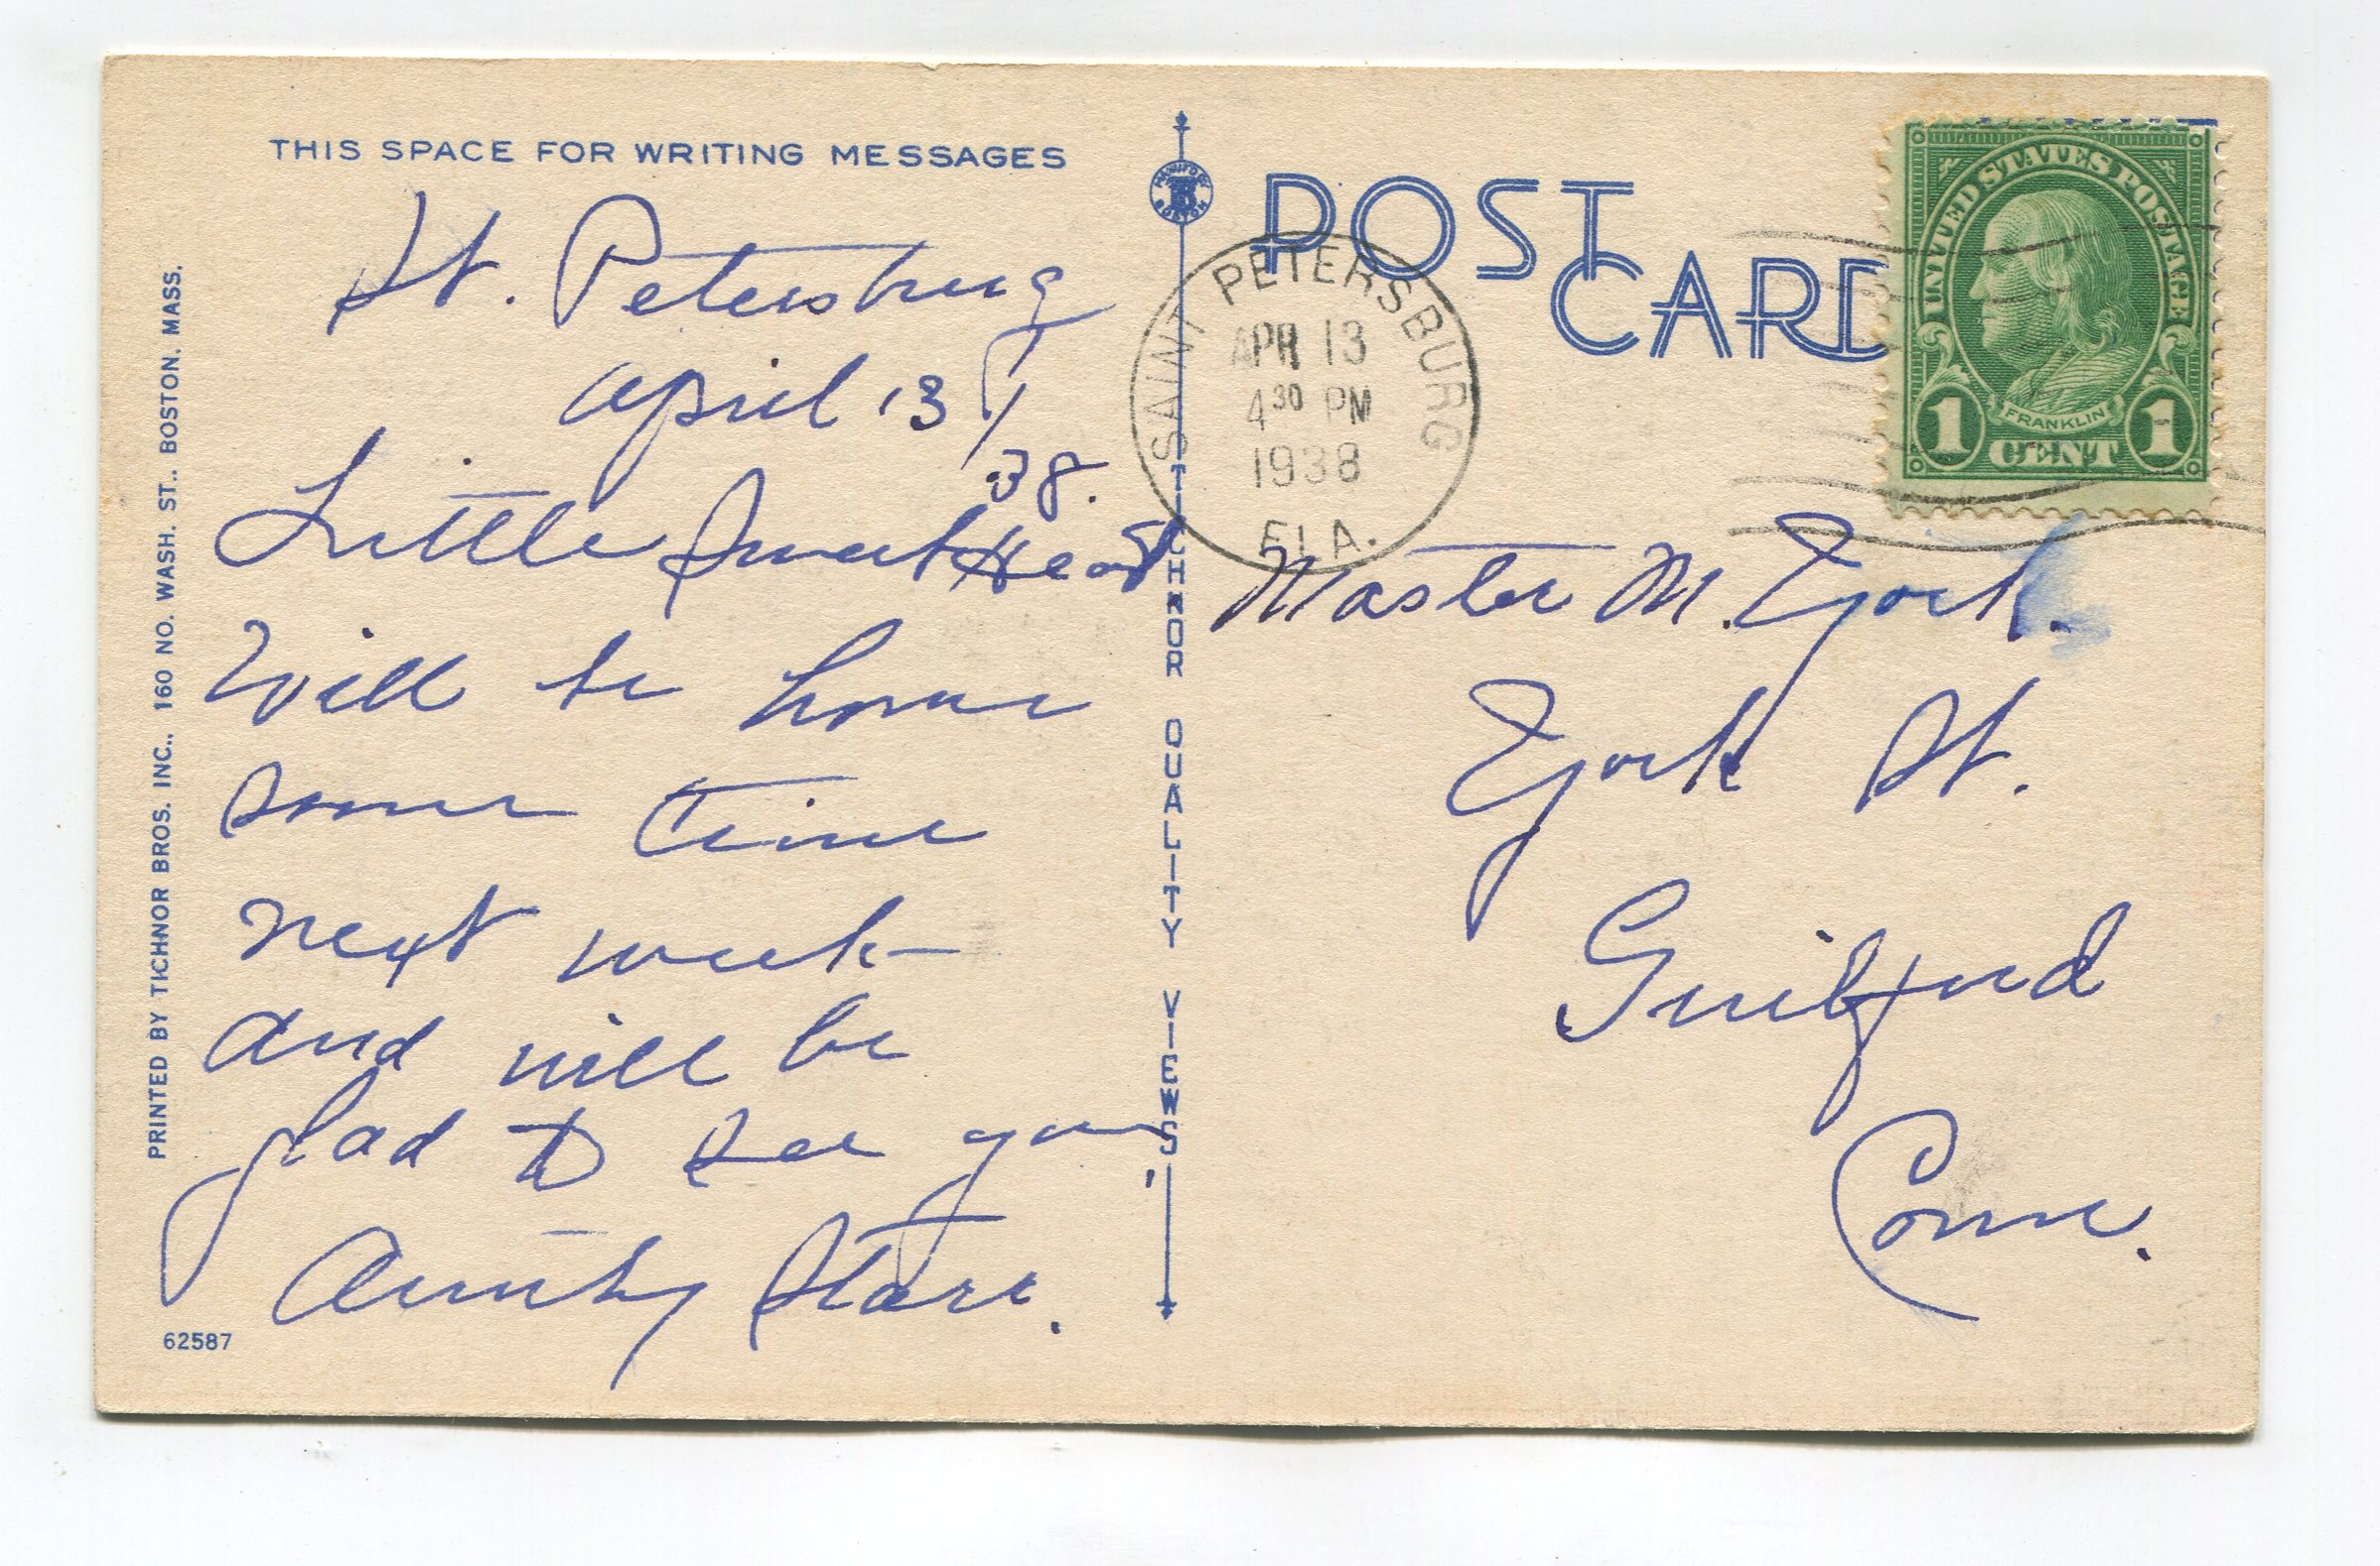 THIS SPACE FOR WRITING MESSAGES
St. Petersburg
April 13
38.
Little Sweet Heart
Will be home
some time
next week
and will be
glad to see you,
Aunty Starr.
62587
PRINTED BY TICHNOR BROS. INC., 160 NO. WASH. ST., BOSTON, MASS.
TICHNOR QUALITY VIEWS
BOSTON
POST
CARD
SAINT PETERSBURG
APR 13
4 30 PM
1938
FLA.
UNITED STATES POSTAGE
FRANKLIN
1 CENT 1
Master M. York.
York St.
Guilford
Conn.